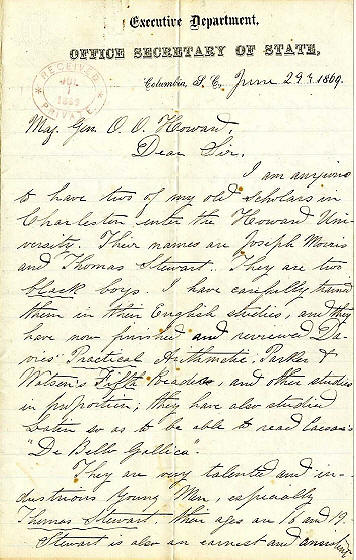 Executive Department,
OFFICE SECRETARY OF STATE,
RECEIVED
JUL
1
1869
Columbia, S. C., June 29th 1869.
Maj. Gen. O. O. Howard,
Dear Sir.
I am anxious
to have two of my old scholars in
Charleston enter the Howard Uni-
versity. Their names are Joseph Morris
and Thomas Stewart. They are two
black boys. I have carefully trained
them in their English studies, and they
have now finished and reviewed Da-
vies' Practical Arithmetic, Parker &
Watson's Fifth Reader, and other studies
in proportion; they have also studied
Latin so as to be able to read Caesar's
"De Bello Gallico".
They are very talented and in-
dustrious young Men, especially
Thomas Stewart. Their ages are 18 and 19.
Stewart is also an earnest and